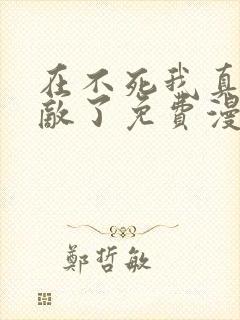 在不死我真
敵了免費漫
鄭哲敏